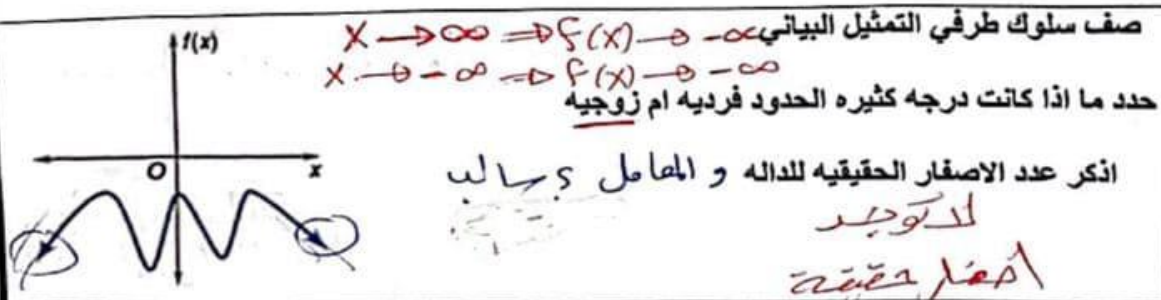 صف سلوك طرفي التمثيل البياني x → ∞ ⇒ f(x) → -∞
x → -∞ ⇒ f(x) → -∞
حدد ما اذا كانت درجه كثيره الحدود فرديه ام زوجيه
اذكر عدد الاصفار الحقيقيه للداله و المعامل ؟ سالب
لا توجد
أصفار حقيقية
f(x)
O
x